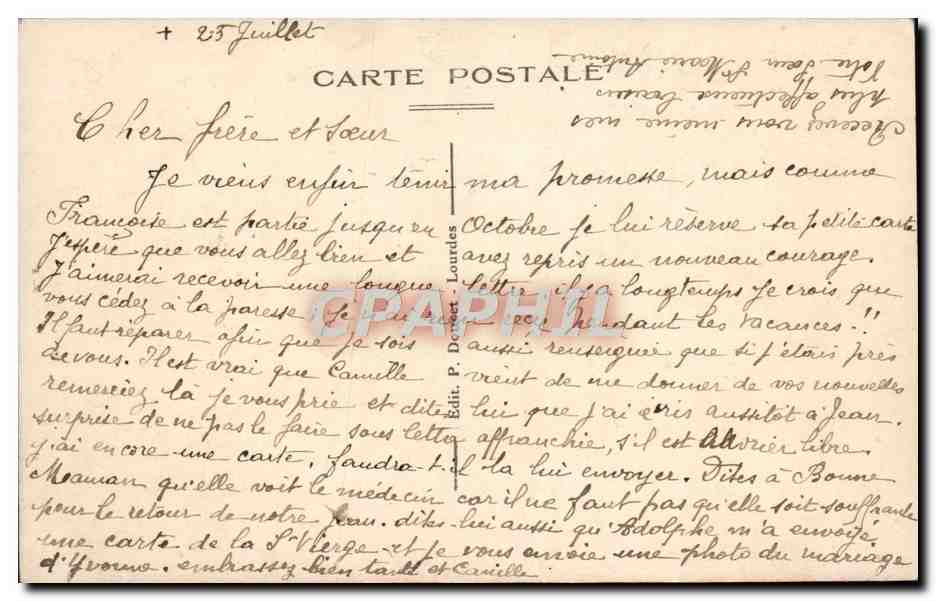 + 25 Juillet
CARTE POSTALE
Cher frère et Sœur
Je viens enfin tenir ma promesse, mais comme
Françoise est partie jusqu'en Octobre je lui réserve sa petite carte
J'espère que vous allez bien et avez repris un nouveau courage.
J'aimerai recevoir une longue lettre, il y a longtemps Je crois que
vous cédez à la paresse. Je n'ai rien reçu pendant les vacances!!
Il faut réparer afin que je sois aussi renseignée que si j'étais près
de vous. Il est vrai que Camille vient de me donner de vos nouvelles
remerciez là je vous prie et dites lui que j'ai écris aussitôt à Jean.
surprise de ne pas le faire sous lettre affranchie, s'il est ouvrier libre.
j'ai encore une carte. faudra-t-il la lui envoyer. Dites à Bonne
Maman qu'elle voit le médecin car il ne faut pas qu'elle soit souffrante
pour le retour de notre Jean. dites-lui aussi qu'Adolphe m'a envoyé
une carte de la Ste Vierge et je vous envoie une photo du mariage
d'Yvonne. embrassez bien tante et Camille
Recevez vous même mes
plus affectueux baisers
Votre Sœur Sr Marie Antoine
Edit. P. Doucet - Lourdes
CPAPHIL